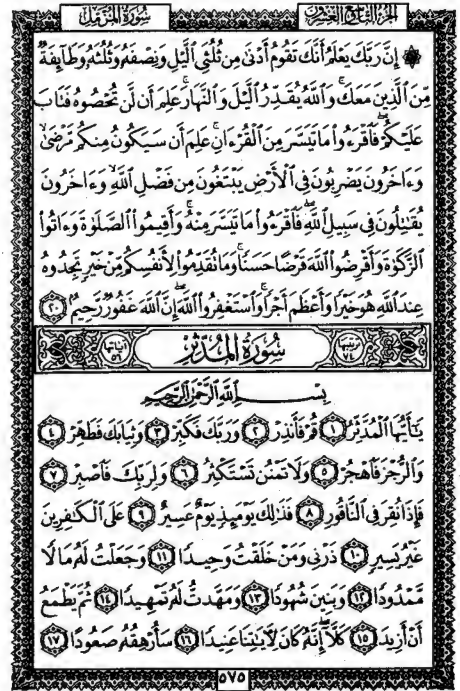 الجزء التاسع والعشرون
سورة المزمل
۞ إِنَّ رَبَّكَ يَعْلَمُ أَنَّكَ تَقُومُ أَدْنَىٰ مِن ثُلُثَيِ ٱلَّيْلِ وَنِصْفَهُۥ وَثُلُثَهُۥ وَطَآئِفَةٌ
مِّنَ ٱلَّذِينَ مَعَكَ ۚ وَٱللَّهُ يُقَدِّرُ ٱلَّيْلَ وَٱلنَّهَارَ ۚ عَلِمَ أَن لَّن تُحْصُوهُ فَتَابَ
عَلَيْكُمْ ۖ فَٱقْرَءُوا۟ مَا تَيَسَّرَ مِنَ ٱلْقُرْءَانِ ۚ عَلِمَ أَن سَيَكُونُ مِنكُم مَّرْضَىٰ ۙ
وَءَاخَرُونَ يَضْرِبُونَ فِى ٱلْأَرْضِ يَبْتَغُونَ مِن فَضْلِ ٱللَّهِ ۙ وَءَاخَرُونَ
يُقَٰتِلُونَ فِى سَبِيلِ ٱللَّهِ ۖ فَٱقْرَءُوا۟ مَا تَيَسَّرَ مِنْهُ ۚ وَأَقِيمُوا۟ ٱلصَّلَوٰةَ وَءَاتُوا۟
ٱلزَّكَوٰةَ وَأَقْرِضُوا۟ ٱللَّهَ قَرْضًا حَسَنًا ۚ وَمَا تُقَدِّمُوا۟ لِأَنفُسِكُم مِّنْ خَيْرٍ تَجِدُوهُ
عِندَ ٱللَّهِ هُوَ خَيْرًا وَأَعْظَمَ أَجْرًا ۚ وَٱسْتَغْفِرُوا۟ ٱللَّهَ ۖ إِنَّ ٱللَّهَ غَفُورٌ رَّحِيمٌۢ ٢٠
ترتيبها ٧٤ سُورَةُ المُدَّثِّرِ آياتها ٥٦
بِسْمِ ٱللَّهِ ٱلرَّحْمَٰنِ ٱلرَّحِيمِ
يَٰٓأَيُّهَا ٱلْمُدَّثِّرُ ١ قُمْ فَأَنذِرْ ٢ وَرَبَّكَ فَكَبِّرْ ٣ وَثِيَابَكَ فَطَهِّرْ ٤
وَٱلرُّجْزَ فَٱهْجُرْ ٥ وَلَا تَمْنُن تَسْتَكْثِرُ ٦ وَلِرَبِّكَ فَٱصْبِرْ ٧
فَإِذَا نُقِرَ فِى ٱلنَّاقُورِ ٨ فَذَٰلِكَ يَوْمَئِذٍ يَوْمٌ عَسِيرٌ ٩ عَلَى ٱلْكَٰفِرِينَ
غَيْرُ يَسِيرٍ ١٠ ذَرْنِى وَمَنْ خَلَقْتُ وَحِيدًا ١١ وَجَعَلْتُ لَهُۥ مَالًا
مَّمْدُودًا ١٢ وَبَنِينَ شُهُودًا ١٣ وَمَهَّدتُّ لَهُۥ تَمْهِيدًا ١٤ ثُمَّ يَطْمَعُ
أَنْ أَزِيدَ ١٥ كَلَّآ ۖ إِنَّهُۥ كَانَ لِـَٔايَٰتِنَا عَنِيدًا ١٦ سَأُرْهِقُهُۥ صَعُودًا ١٧
٥٧٥